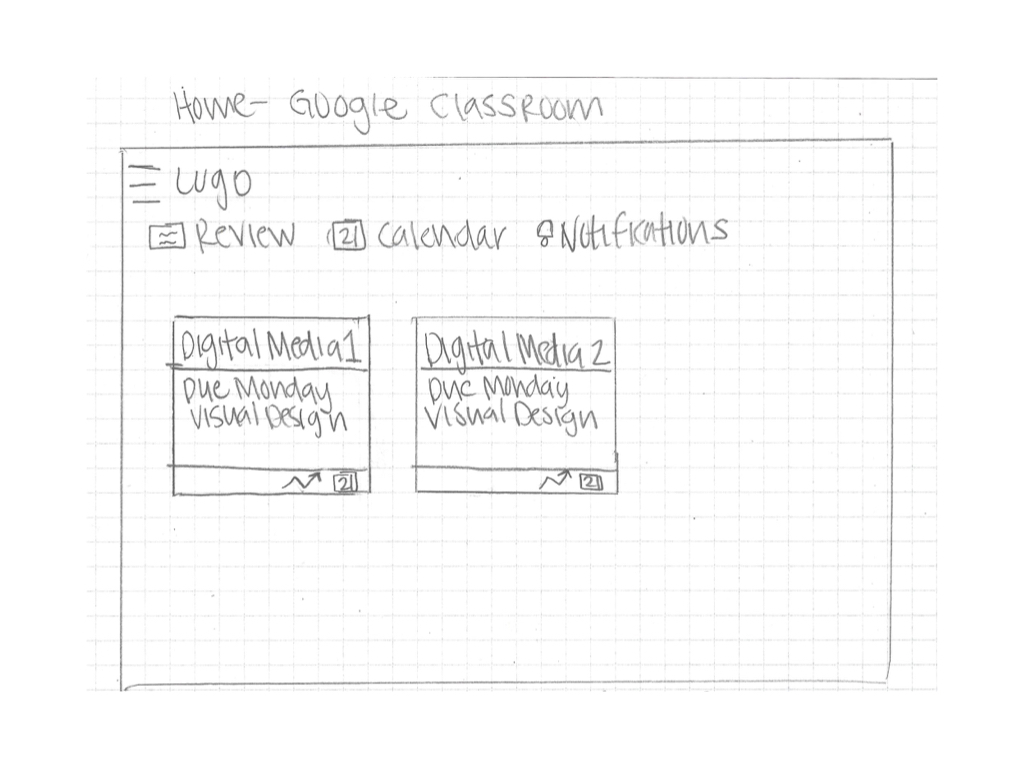 Home- Google Classroom
Lugo
Review 21 Calendar Notifications
Digital Media 1
Due Monday
Visual Design
21
Digital Media 2
Due Monday
Visual Design
21